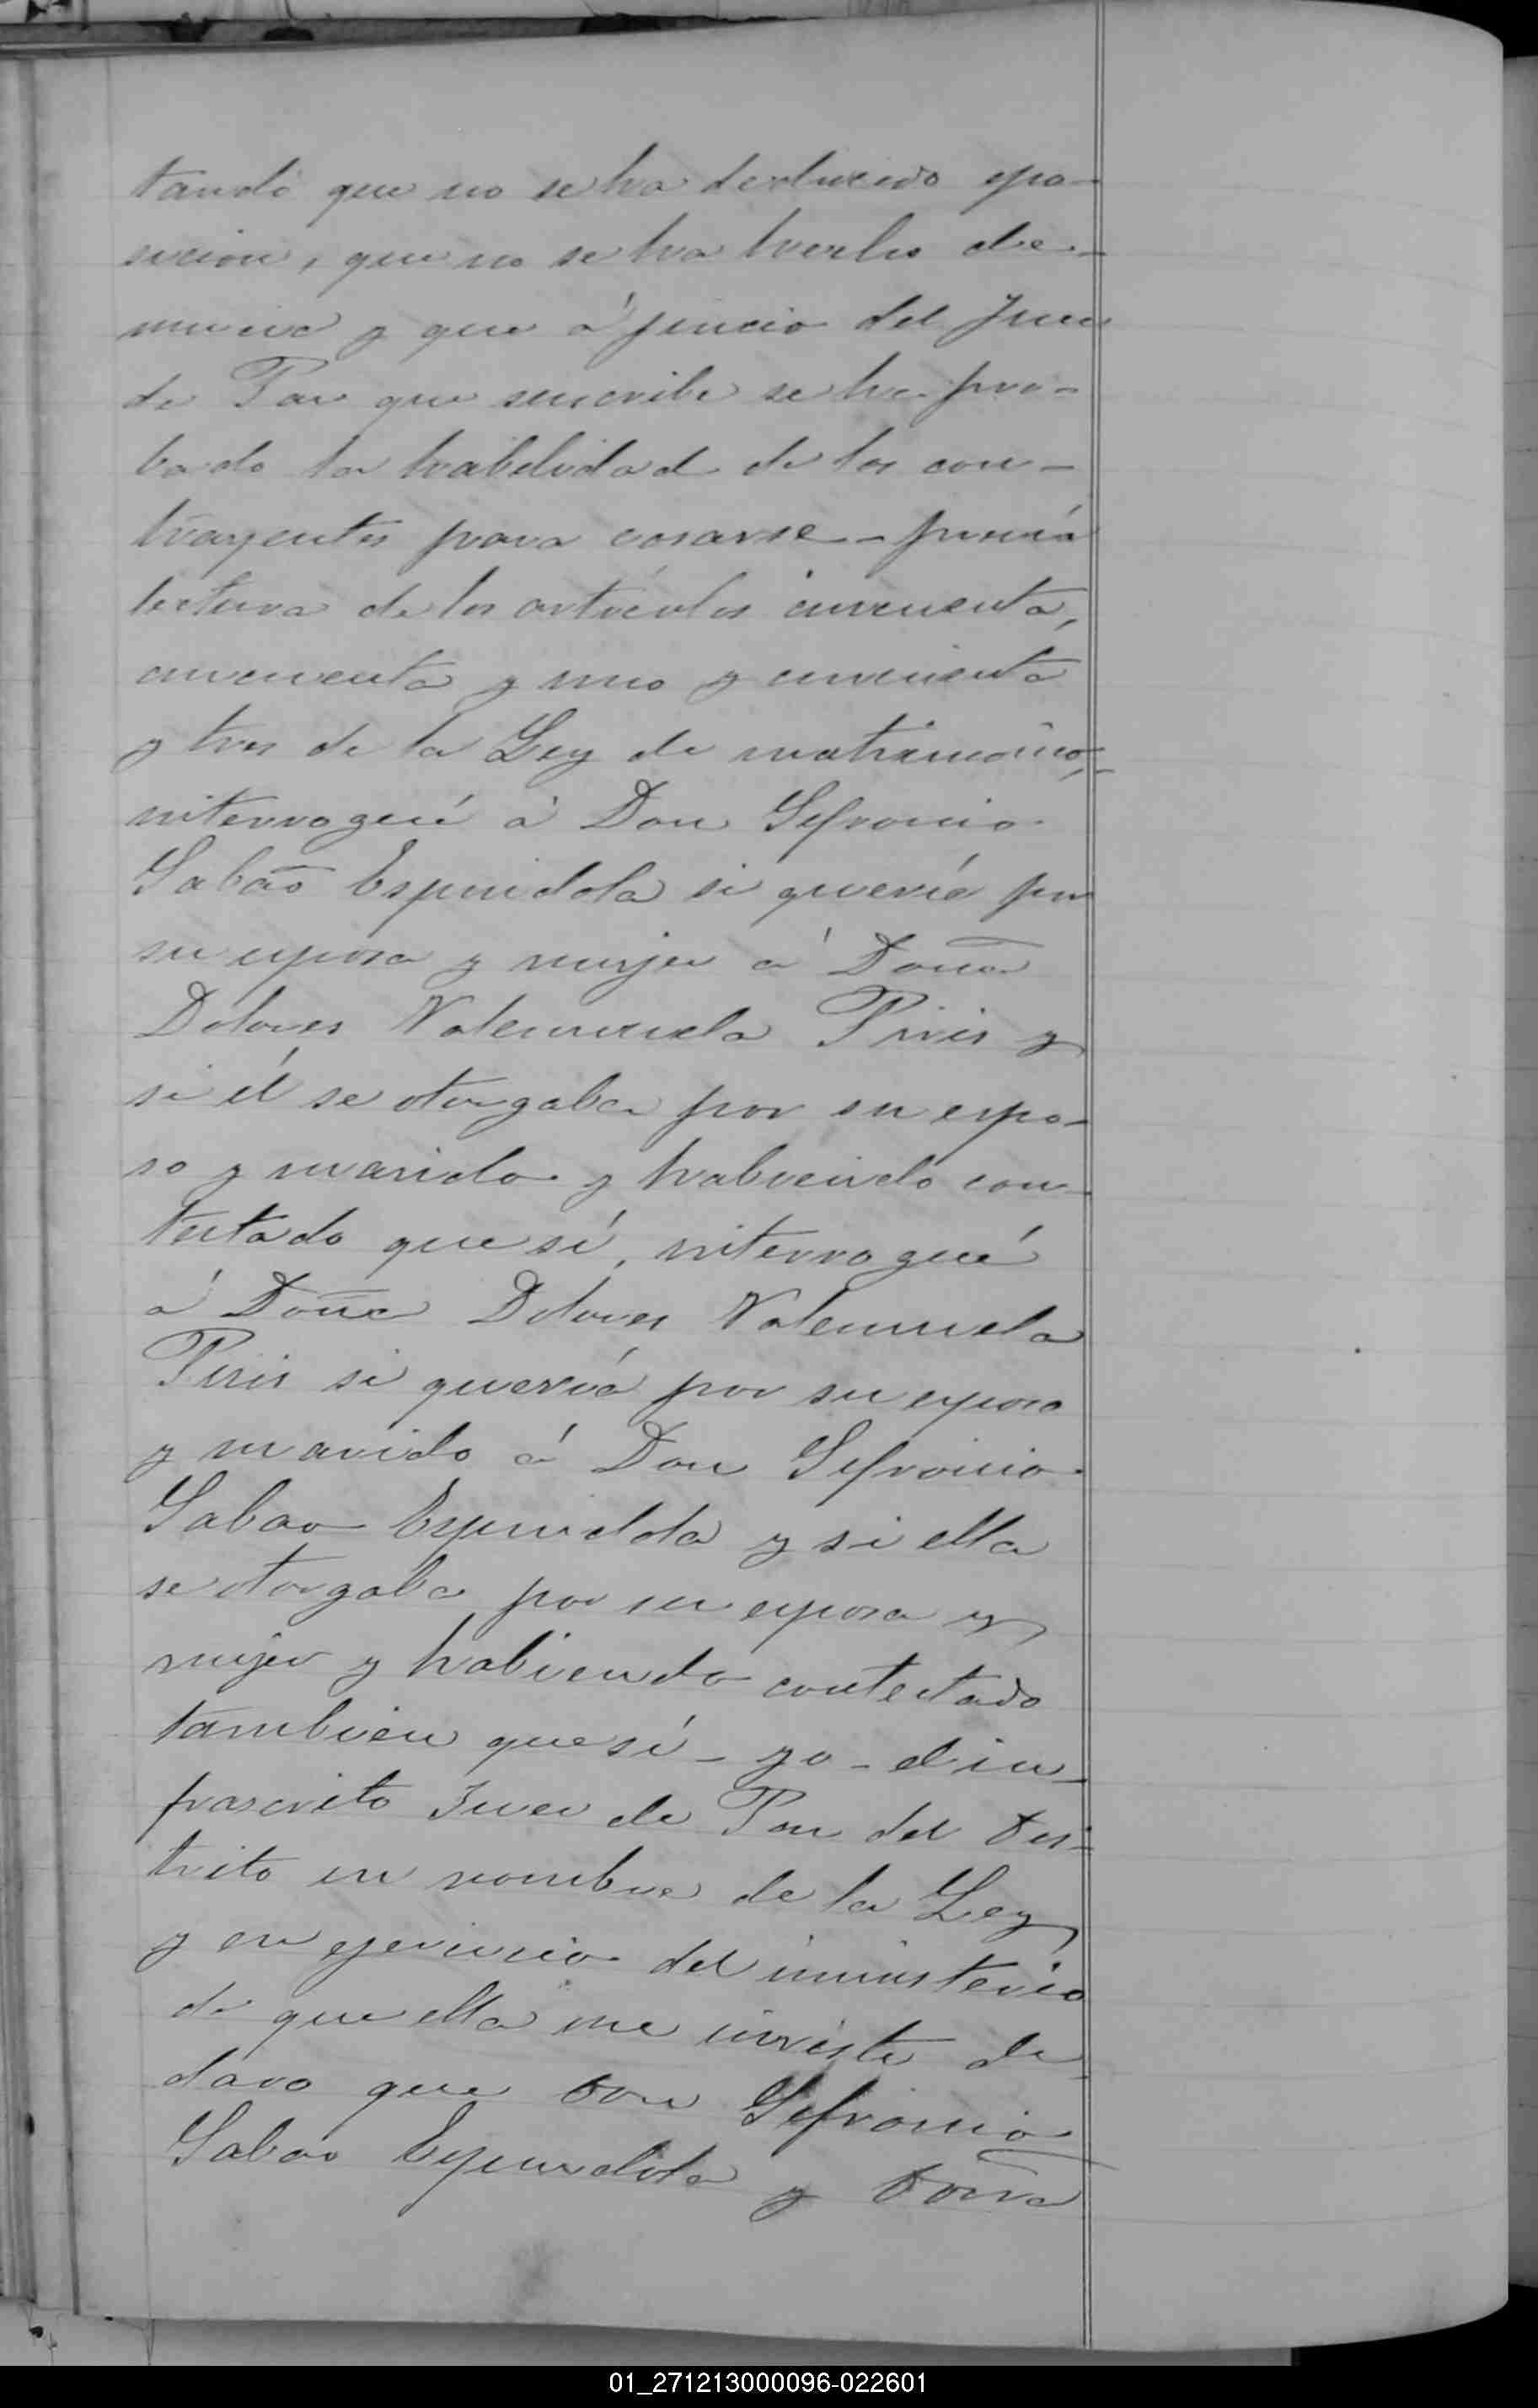 tando que no se ha deducido opo-
sicion, que no se ha hecho de-
nuncia y que á juicio del Juez
de Paz que suscribe se ha pro-
bado la habilidad de los con-
trayentes para casarse - previa
lectura de los artículos cincuenta,
cincuenta y uno y cincuenta
y tres de la Ley de matrimonio,
interrogué á Don Sefronio
Gabão Espindola si quería por
su esposa y mujer á Doña
Dolores Valenzuela Piris y
si él se otorgaba por su espo-
so y marido y habiendo con-
testado que sí, interrogué
á Doña Dolores Valenzuela
Piris si quería por su esposo
y marido á Don Sefronio
Gabao Espindola y si ella
se otorgaba por su esposa y
mujer y habiendo contestado
tambien que sí - yo - el in-
frascrito Juez de Paz del Dis-
trito en nombre de la Ley
y en ejercicio del ministerio
de que ella me inviste de
claro que Don Sefronio
Gabao Espindola y Doña
01_271213000096-022601